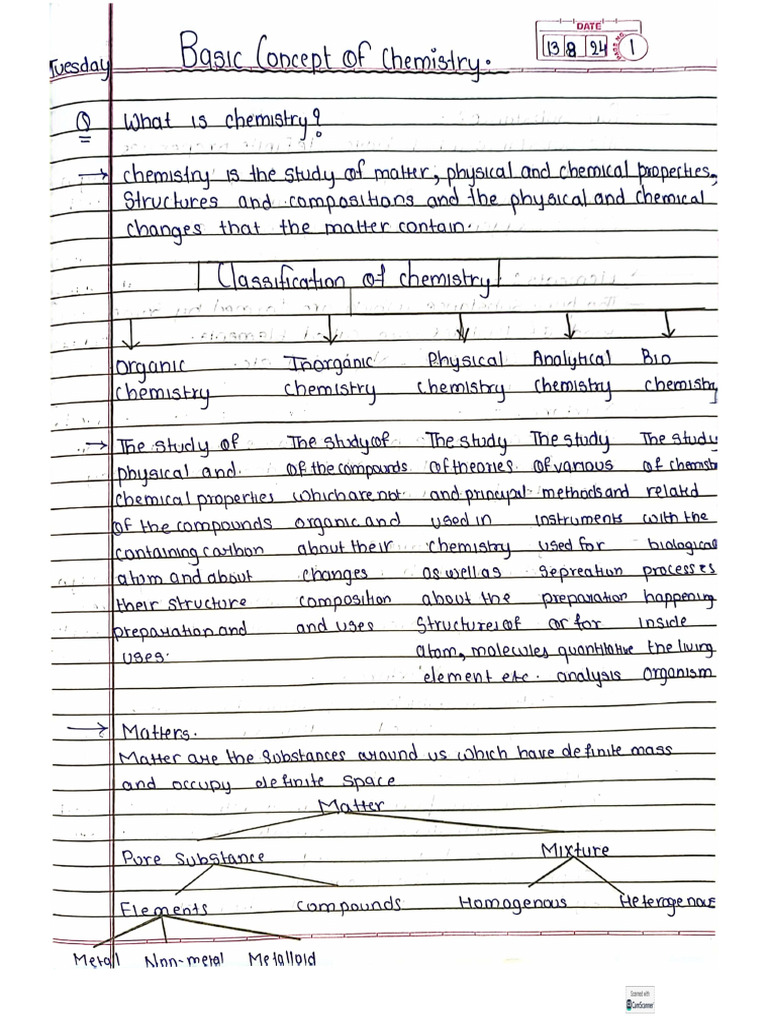 DATE
13 8 24 1
Tuesday
Basic Concept of Chemistry.
Q What is chemistry?
→ chemistry is the study of matter, physical and chemical properties,
structures and compositions and the physical and chemical
changes that the matter contain.
Classification of chemistry
Organic Inorganic Physical Analytical Bio
chemistry chemistry chemistry chemistry chemistry
→ The study of The study of The study The study The study
physical and of the compounds of theories of various of chemist
chemical properties which are not and principal methods and related
of the compounds organic and used in instruments with the
containing carbon about their chemistry used for biological
atom and about changes as well as sepreation processes
their structure composition about the preparation happening
preparation and and uses structures of or for inside
uses. atom, molecules quantitative the living
element etc. analysis organism
→ Matters.
Matter are the substances around us which have definite mass
and occupy definite space
Matter
Pure Substance Mixture
Elements Compounds Homogenous Heterogenous
Metal Non-metal Metalloid
Scanned with
CamScanner